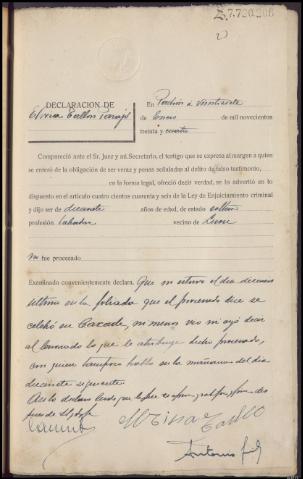 Z.7.720.206
2
DECLARACION DE
Elvira
En Padrón a veintisiete
de Enero de mil novecientos
treinta y cuatro
Compareció ante el Sr. Juez y mi Secretario, el testigo que se expresa al margen a quien
se enteró de la obligación de ser veraz y penas señaladas al delito de falso testimonio,
en la forma legal, ofreció decir verdad, se le advirtió en lo
dispuesto en el artículo cuatro cientos cuarenta y seis de la Ley de Enjuiciamiento criminal
y dijo ser de diecisiete años de edad, de estado soltera
profesión labradora vecino de
no fue procesado.
Examinado convenientemente declara. Que no estuvo el día
último en la foliada que el procesado dice se
celebró en, ni menos vio ni oyó decir
al lo que le atribuye dicho procesado,
con quien tampoco habló en la mañana del día
diecisiete siguiente.
Así lo declara leído que le fue se afirma, ratifica, firma des
pues de S.Sª doy fe
Elvira
Antonio